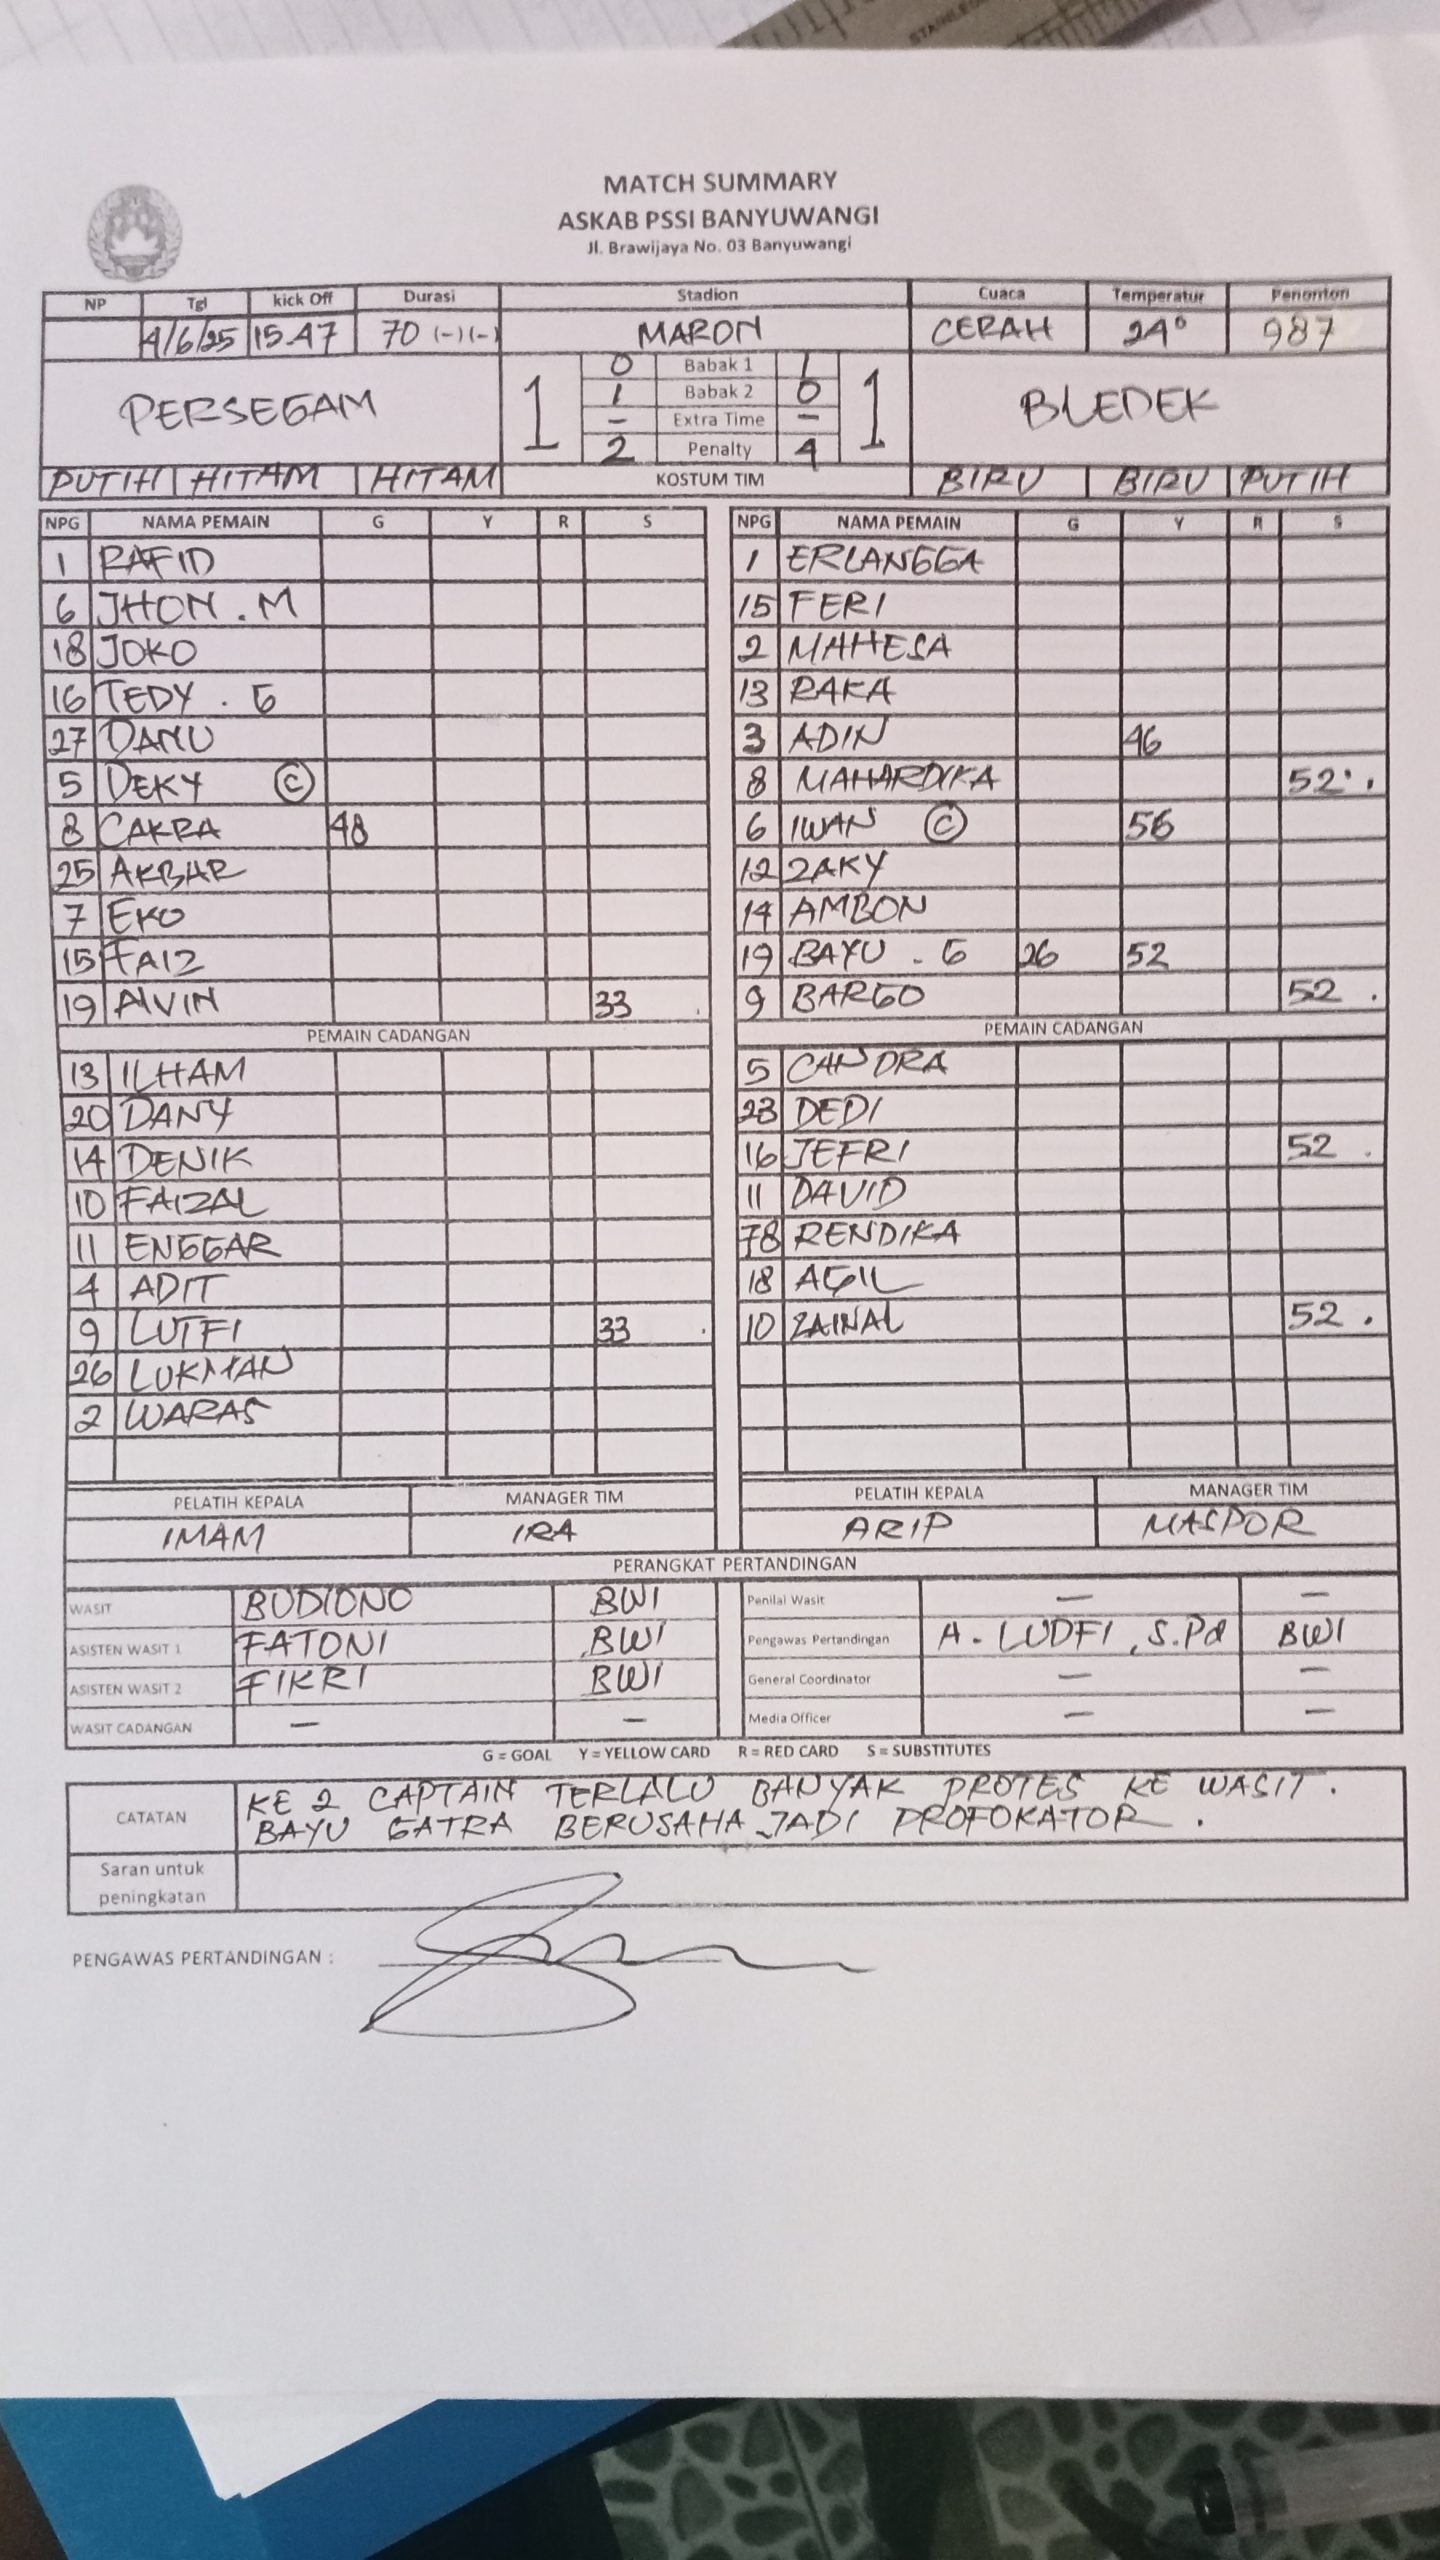 STAINLESS
MATCH SUMMARY
ASKAB PSSI BANYUWANGI
Jl. Brawijaya No. 03 Banyuwangi
NP Tgl kick Off Durasi Stadion Cuaca Temperatur Penonton
4/6/25 15.47 70 (-) (-) MARON CERAH 24° 987
PERSEGAM 1 0 Babak 1 1 1 BLEDEK
1 Babak 2 0
- Extra Time -
2 Penalty 4
PUTIH HITAM HITAM KOSTUM TIM BIRU BIRU PUTIH
NPG NAMA PEMAIN G Y R S NPG NAMA PEMAIN G Y R S
1 RAFID 1 ERLANGGA
6 JHON . M 15 FERI
18 JOKO 2 MAHESA
16 TEDY . G 13 RAKA
27 DANU 3 ADIN 46
5 DEKY © 8 MAHARDIKA 52' .
8 CAKRA 48 6 IWAN © 56
25 AKBAR 12 ZAKY
7 EKO 14 AMBON
15 FAIZ 19 BAYU . G 26 52
19 ALVIN 33 . 9 BARGO 52 .
PEMAIN CADANGAN PEMAIN CADANGAN
13 ILHAM 5 CANDRA
20 DANY 23 DEDI
14 DENIK 16 JEFRI 52 .
10 FAIZAL 11 DAVID
11 ENGGAR 78 RENDIKA
4 ADIT 18 AGIL
9 LUTFI 33 . 10 ZAINAL 52 .
26 LUKMAN
2 WARAS
PELATIH KEPALA MANAGER TIM PELATIH KEPALA MANAGER TIM
IMAM IRA ARIP MASPOR
PERANGKAT PERTANDINGAN
WASIT BUDIONO BWI Penilai Wasit - -
ASISTEN WASIT 1 FATONI BWI Pengawas Pertandingan A. LUDFI, S.Pd BWI
ASISTEN WASIT 2 FIKRI BWI General Coordinator - -
WASIT CADANGAN - - Media Officer - -
G = GOAL Y = YELLOW CARD R = RED CARD S = SUBSTITUTES
CATATAN KE 2 CAPTAIN TERLALU BANYAK PROTES KE WASIT.
BAYU GATRA BERUSAHA JADI PROFOKATOR.
Saran untuk
peningkatan
PENGAWAS PERTANDINGAN :